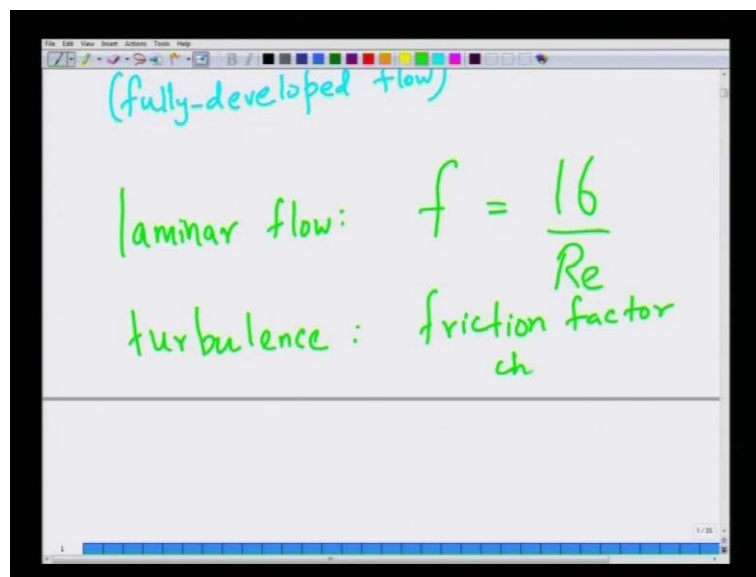 File Edit View Insert Actions Tools Help
(fully-developed flow)
laminar flow: f = 16 / Re
turbulence : friction factor
ch
1 / 33
1